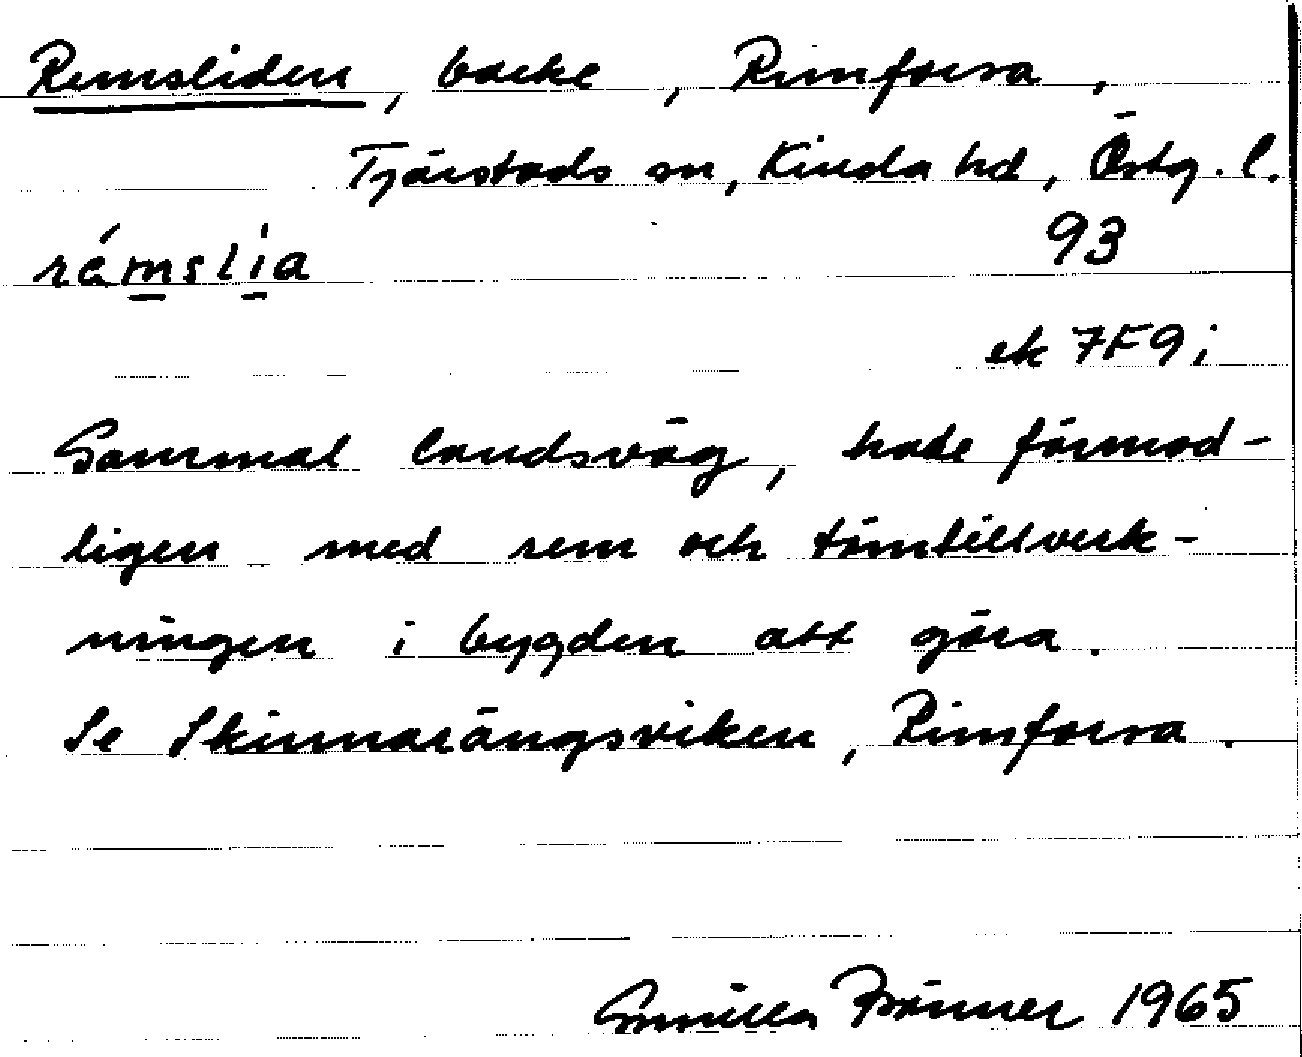 Remsliden, backe, Rimforsa,
Tjärstads sn, Kinda hd, Östg. l.
rémslía 93
ek 7F9i
Gammal landsväg, hade förmod-
ligen med rem och tömtillverk-
ningen i bygden att göra.
Se Skinnarängsviken, Rimforsa.
Gunilla Brönner 1965